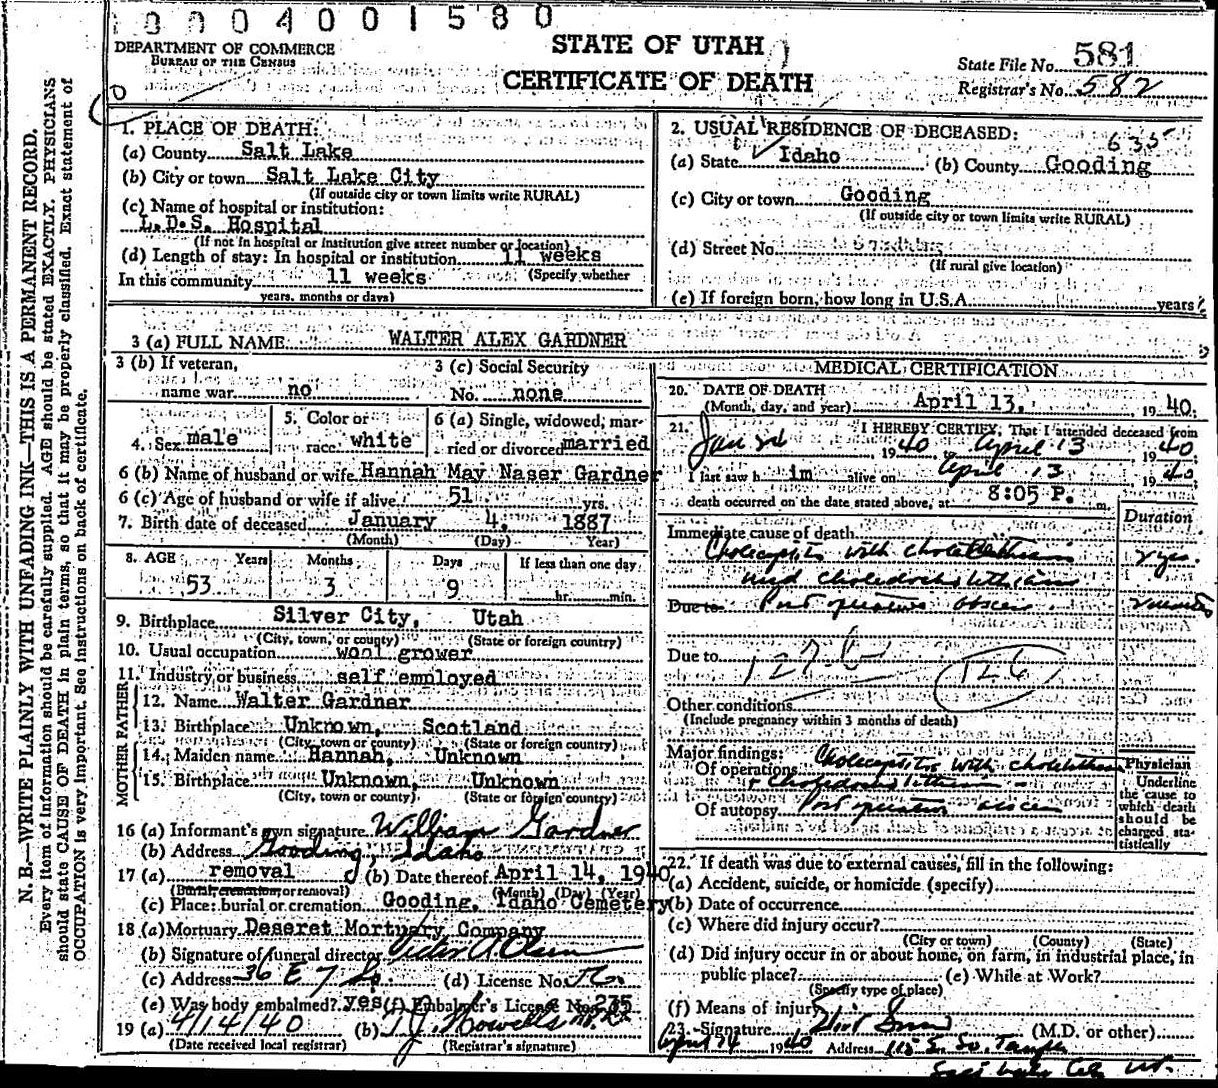 0 0 0 4 0 0 1 5 8 0
DEPARTMENT OF COMMERCE
BUREAU OF THE CENSUS
STATE OF UTAH
CERTIFICATE OF DEATH
State File No. 581
Registrar's No. 582
N. B.—WRITE PLAINLY WITH UNFADING INK—THIS IS A PERMANENT RECORD.
Every item of information should be carefully supplied. AGE should be stated EXACTLY. PHYSICIANS
should state CAUSE OF DEATH in plain terms, so that it may be properly classified. Exact statement of
OCCUPATION is very important. See instructions on back of certificate.
1. PLACE OF DEATH:
(a) County Salt Lake
(b) City or town Salt Lake City
(If outside city or town limits write RURAL)
(c) Name of hospital or institution:
L.D.S. Hospital
(If not in hospital or institution give street number or location)
(d) Length of stay: In hospital or institution 11 weeks
(Specify whether
In this community 11 weeks
years, months or days)
2. USUAL RESIDENCE OF DECEASED:
635
(a) State Idaho (b) County Gooding
(c) City or town Gooding
(If outside city or town limits write RURAL)
(d) Street No.
(If rural give location)
(e) If foreign born, how long in U.S.A. years
3 (a) FULL NAME WALTER ALEX GARDNER
3 (b) If veteran,
name war no
3 (c) Social Security
No. none
4. Sex male
5. Color or
race white
6 (a) Single, widowed, mar-
ried or divorced married
6 (b) Name of husband or wife Hannah May Naser Gardner
6 (c) Age of husband or wife if alive 51 yrs.
7. Birth date of deceased January 4, 1887
(Month) (Day) Year)
8. AGE Years Months Days If less than one day
53 3 9 hr. min.
9. Birthplace Silver City, Utah
(City, town, or county) (State or foreign country)
10. Usual occupation wool grower
11. Industry or business self employed
FATHER
12. Name Walter Gardner
13. Birthplace Unknown, Scotland
(City, town or county) (State or foreign country)
MOTHER
14. Maiden name Hannah, Unknown
15. Birthplace Unknown, Unknown
(City, town or county) (State or foreign country)
16 (a) Informant's own signature William Gardner
(b) Address Gooding, Idaho
17 (a) removal (b) Date thereof April 14, 1940
(Burial, cremation or removal) (Month) (Day) (Year)
(c) Place: burial or cremation Gooding, Idaho Cemetery
18 (a) Mortuary Deseret Mortuary Company
(b) Signature of funeral director Victor A. Olsen
(c) Address 36 E 7 So. (d) License No.
(e) Was body embalmed? yes (f) Embalmer's License No. 235
19 (a) 4/14/40 (b) Howells
(Date received local registrar) (Registrar's signature)
MEDICAL CERTIFICATION
20. DATE OF DEATH
(Month, day, and year) April 13, 1940.
21. I HEREBY CERTIFY, That I attended deceased from
Jan 1940 to April 13 1940,
I last saw h im alive on April 13 1940,
death occurred on the date stated above, at 8:05 P. m.
Duration
Immediate cause of death
with
and
Due to Post operative
Due to 127.b 126
Other conditions
(Include pregnancy within 3 months of death)
Major findings:
Of operations with
Of autopsy Post operative
Physician
Underline
the cause to
which death
should be
charged sta-
tistically
22. If death was due to external causes, fill in the following:
(a) Accident, suicide, or homicide (specify)
(b) Date of occurrence
(c) Where did injury occur?
(City or town) (County) (State)
(d) Did injury occur in or about home, on farm, in industrial place, in
public place? (e) While at Work?
(Specify type of place)
(f) Means of injury
23. Signature (M.D. or other)
April 14 1940 Address 115 E. So. Temple